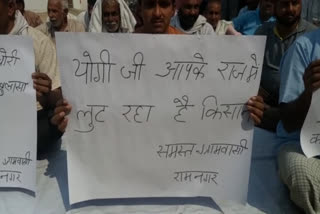 योगी जी आपके राज मे
लुट रहा है किसान
समस्त ग्रामवासी
राम नगर
ग्रामवासी
नगर